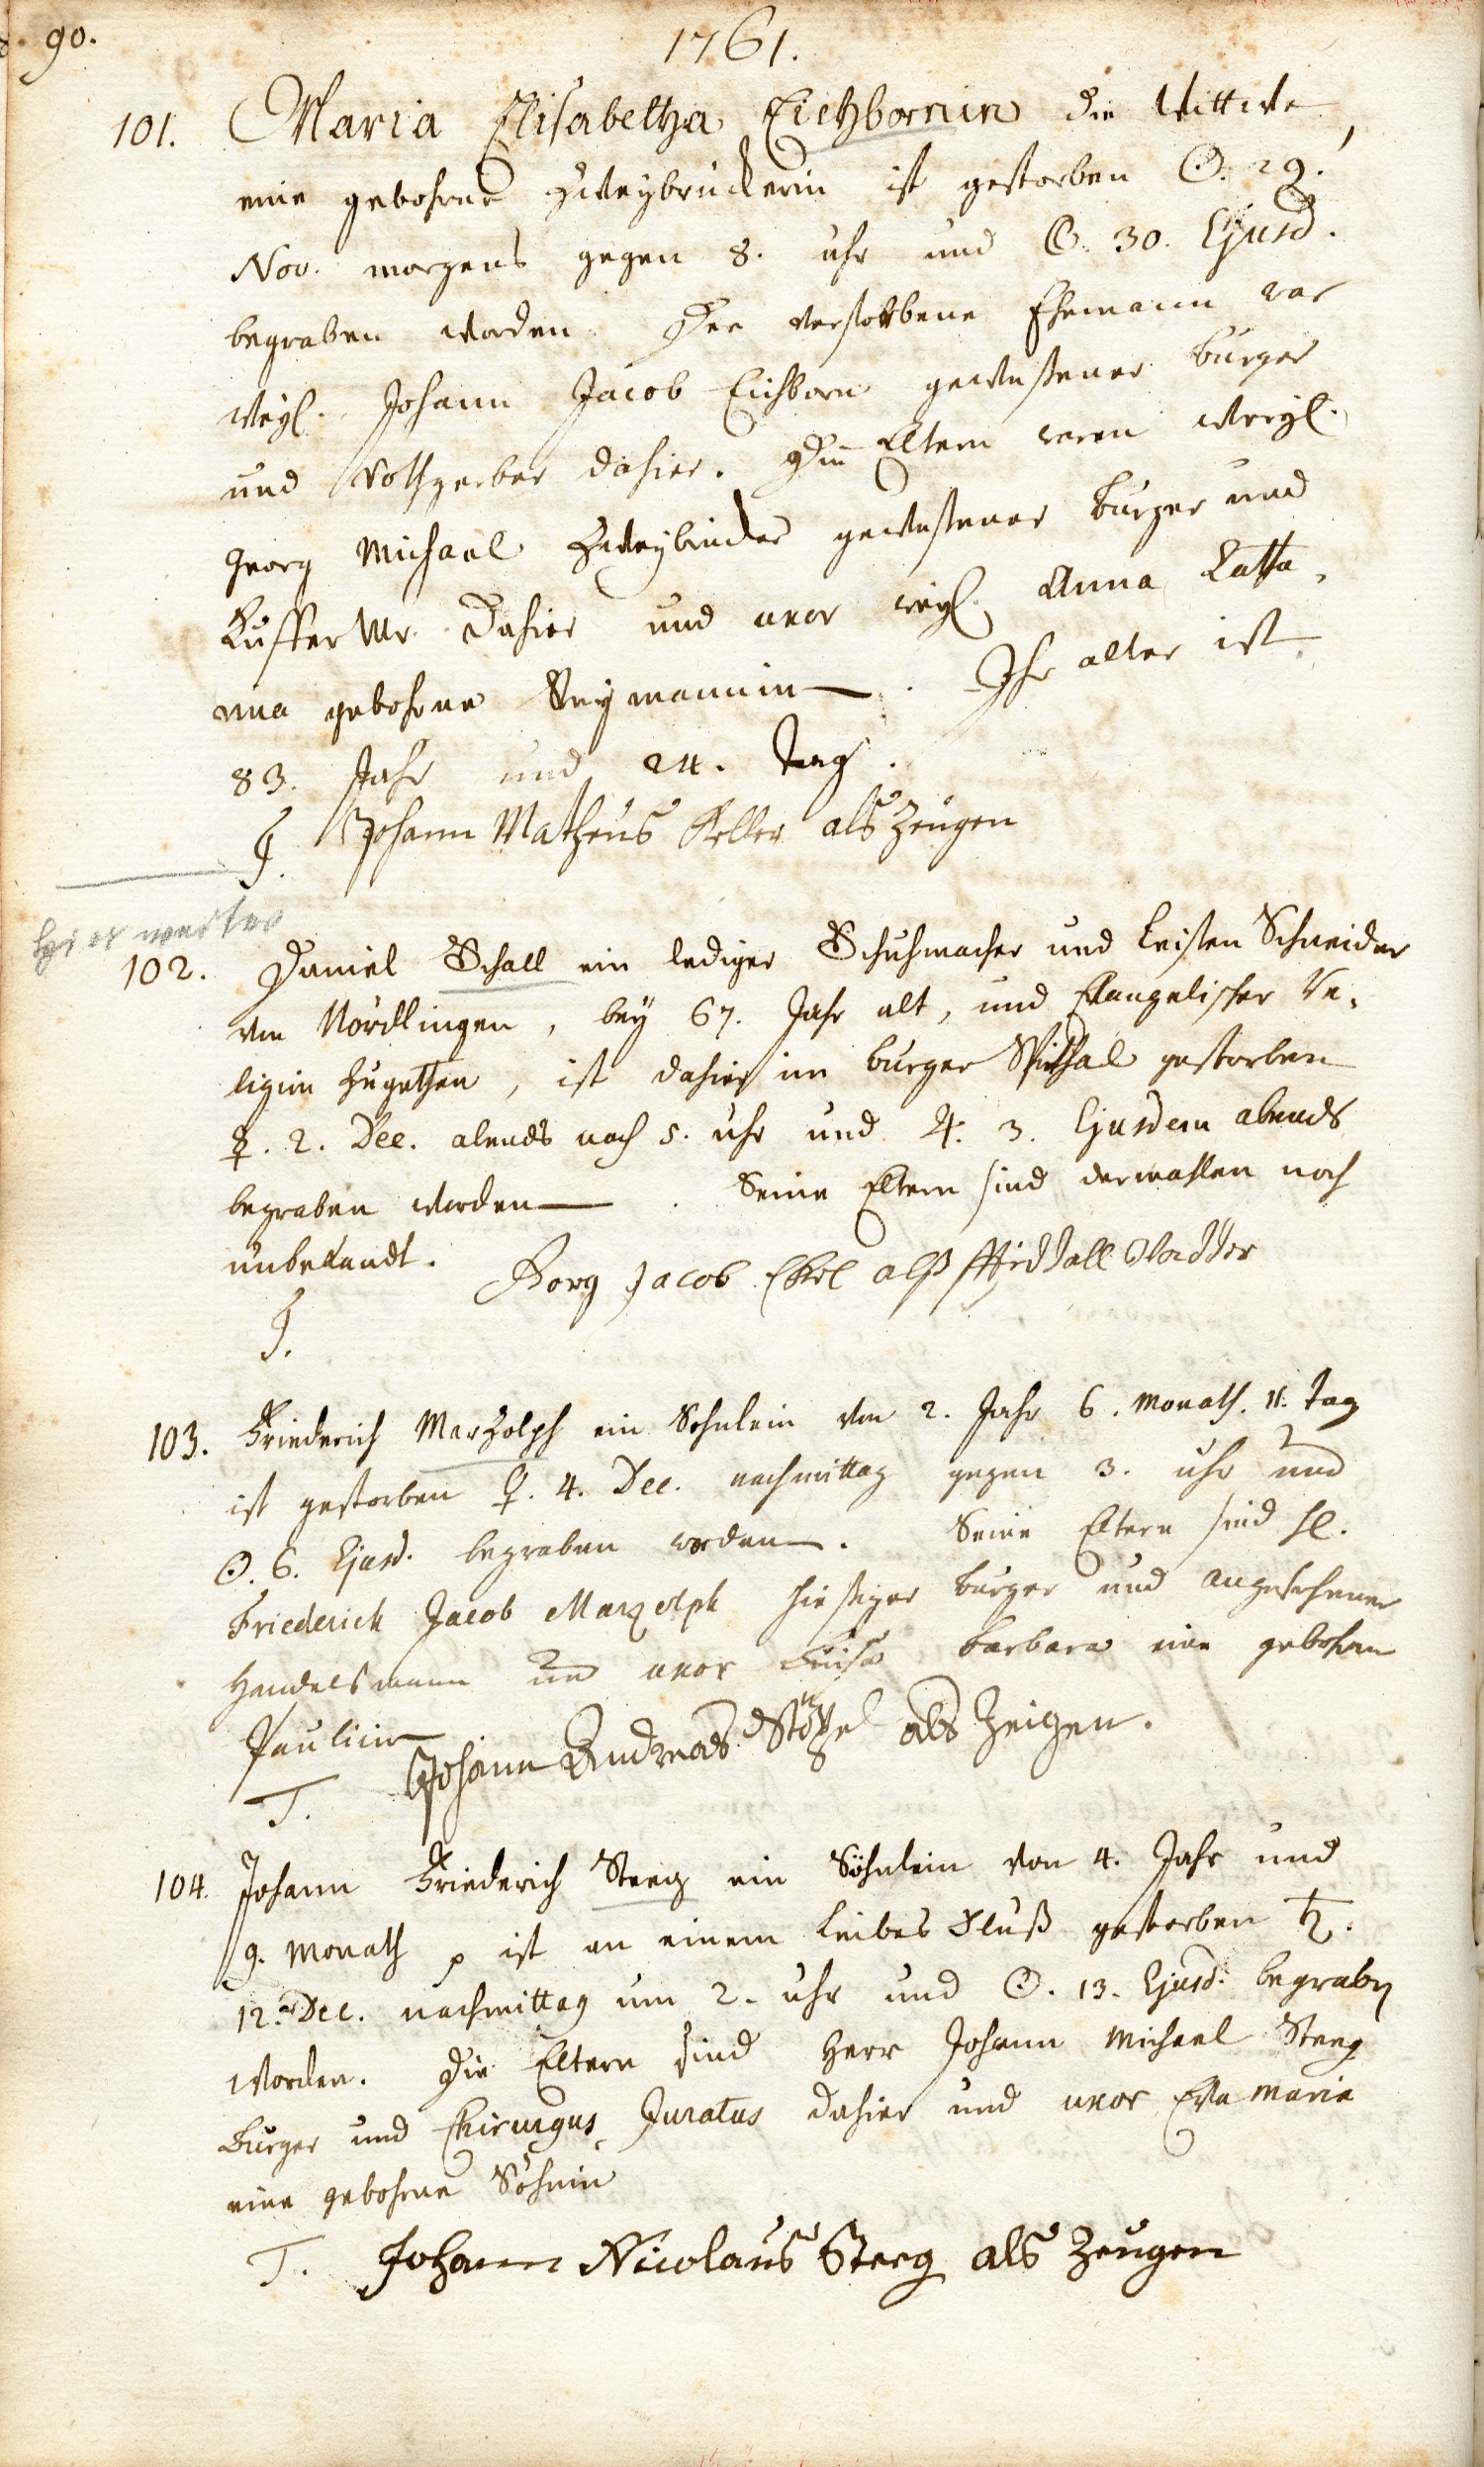 90.
1761.
101. Maria Elisabetha Eichbornin die Wittwe,
eine gebohrne Zweybruckerin ist gestorben ☉. 29.
Nov. morgens gegen 8. uhr und 30. Ejusd.
begraben worden. Der verstorbene Ehemann war
weyl. Johann Jacob Eichborn gewesener burger
und Rothgerber dahier. Die Eltern waren weyl.
Georg Michael Zweybrucker gewesener burger und
Kuffer Mr. dahier und uxor weyl. Anna Catha-
rina gebohrne Reymannin. Ihr alter ist
83. Jahr und 24. Tag.
J. Johann Matheus Keller als Zeugen
102. Daniel Schall ein lediger Schuhmacher und Leisten Schneider
von Nördlingen, bey 67. Jahr alt, und Evangelischer Re-
ligion zugethan, ist dahier im burger Spithal gestorben
☿. 2. Dec. abends nach 5. uhr und ♃. 3. Ejusdem abends
begraben worden. Seine Eltern sind dermahlen noch
unbekandt. Georg Jacob Ekel alß Vadder
J.
103. Friederich Marzolph ein Sohnlein von 2. Jahr 6. Monath. 11. Tag
ist gestorben ♀. 4. Dec. nachmittag gegen 3. uhr und
☉. 6. Ejusd. begraben worden. Seine Eltern sind H.
Friederich Jacob Marzolph hiesiger burger und angesehener
Handelsmann und uxor Luisa Barbara eine gebohrne
Paulin
T. Johann Andreas Stößel als Zeigen.
104. Johann Friederich Steeg ein Söhnlein von 4. Jahr und
9. Monath ist an einem Leibes Fluß gestorben ♄.
12. Dec. nachmittag um 2. uhr und ☉. 13. Ejusd. begraben
worden. Die Eltern sind Herr Johann Michael Steeg
Burger und Chirurgus Juratus dahier und uxor Eva Maria
eine gebohrne Söhnin
T. Johann Nicolaus Steeg als Zeugen